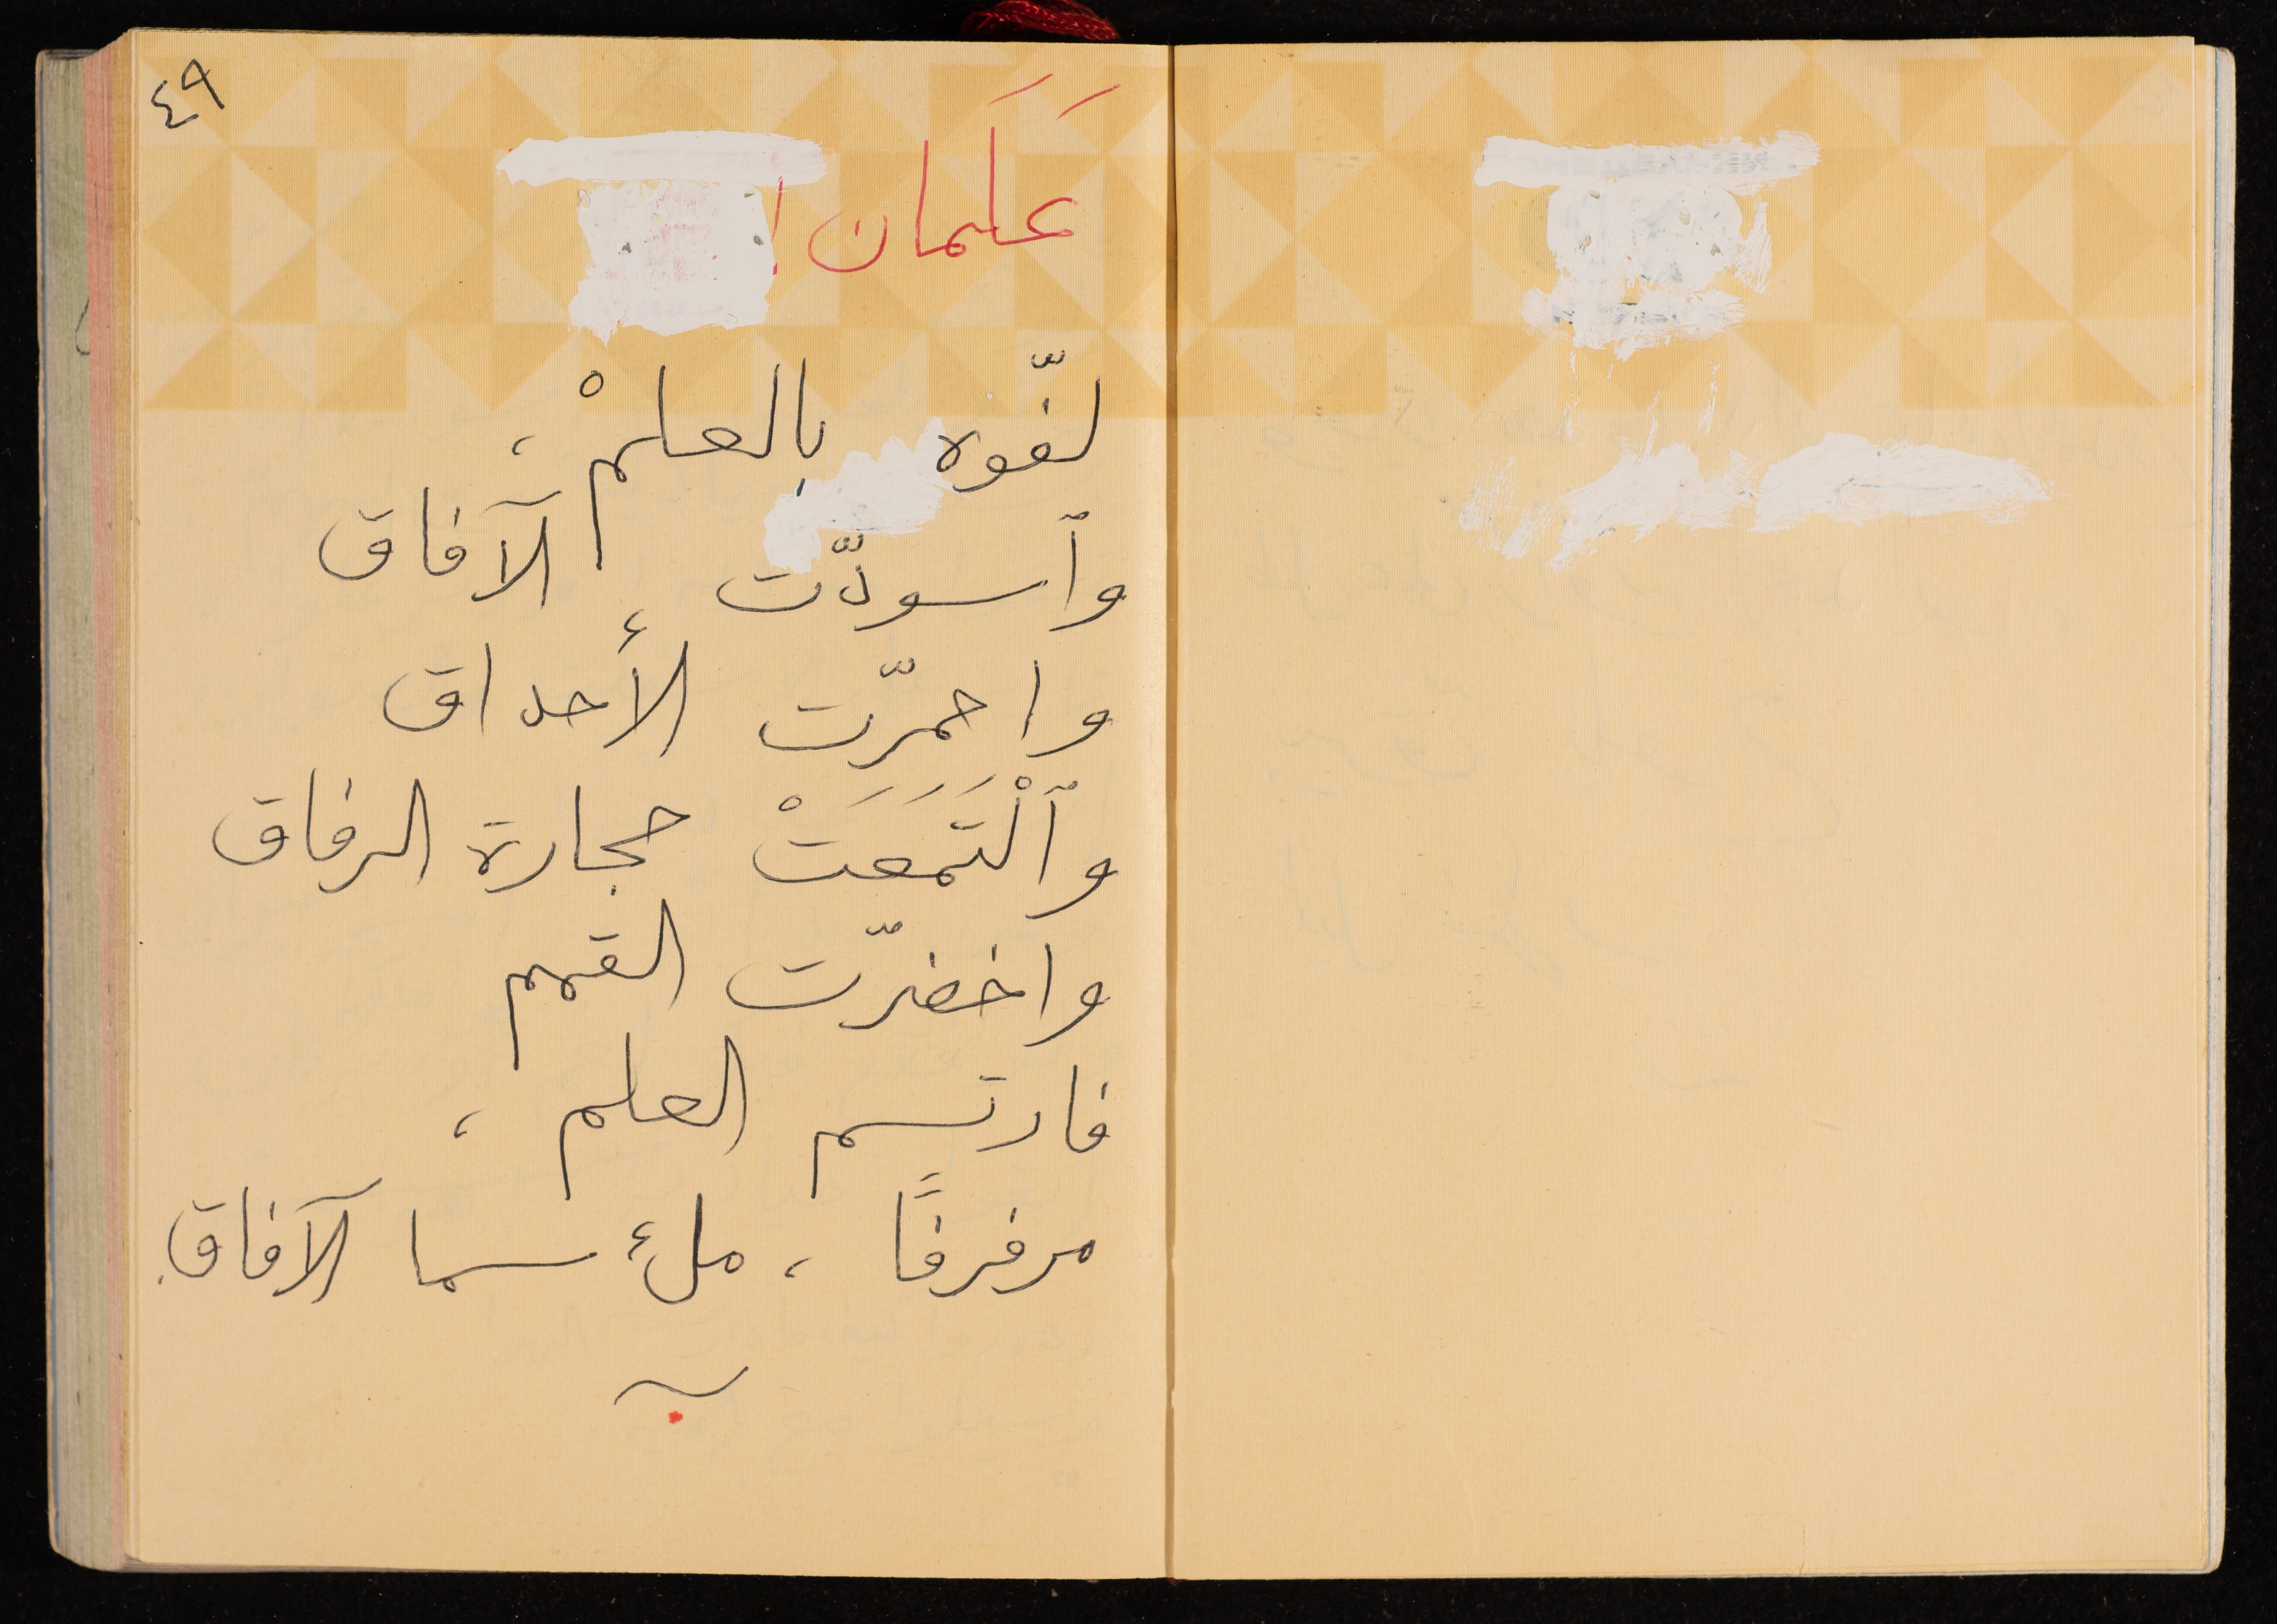 ٤٩
عَلَمان!
لفّوه بالعلمْ،
وٱسودّت الآفاق
واحمرّت الأحداق
وٱلْتَمَعَتْ حجارة الرفاق
واخضرّت القمم
فارتسم العلم،
مرفرفًا، ملء سما الآفاق.